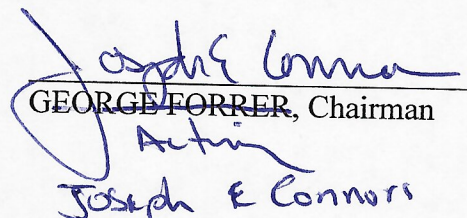 Joseph E Connors
GEORGE FORRER, Chairman
Acting
Joseph E Connors